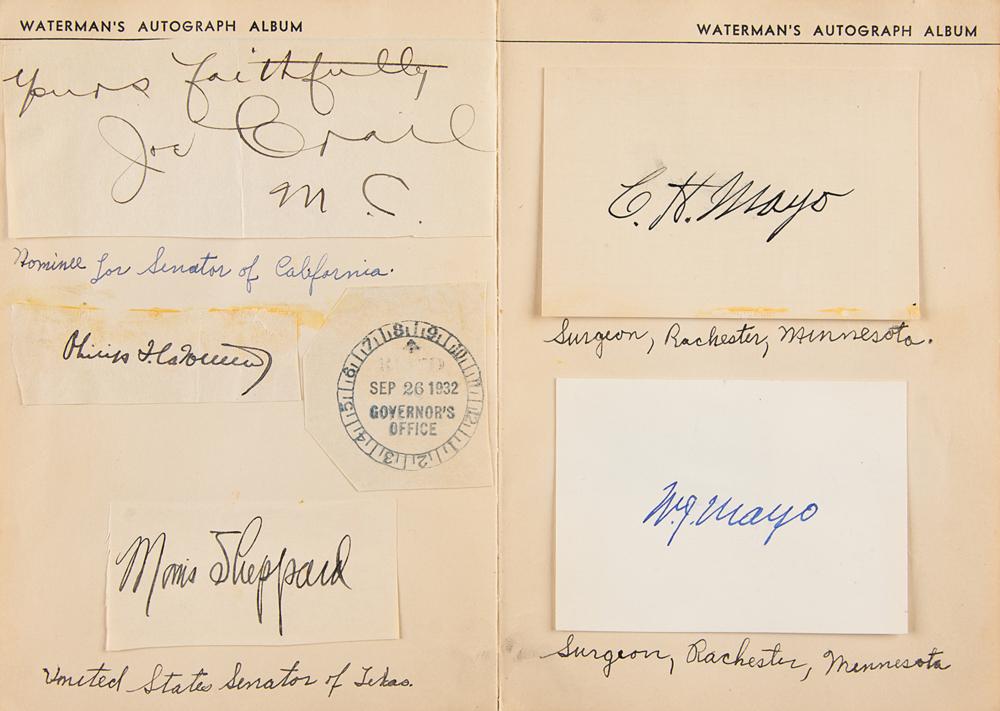 WATERMAN'S AUTOGRAPH ALBUM
Yours faithfully
Joe Crail
M.C.
Nominee for Senator of California.
8 9 10 11 12 1 2 3 4 5 6 7
SEP 26 1932
GOVERNOR'S
OFFICE
Morris Sheppard
United States Senator of Texas.
WATERMAN'S AUTOGRAPH ALBUM
C. H. Mayo
Surgeon, Rachester, Minnesota.
W. J. Mayo
Surgeon, Rachester, Minnesota